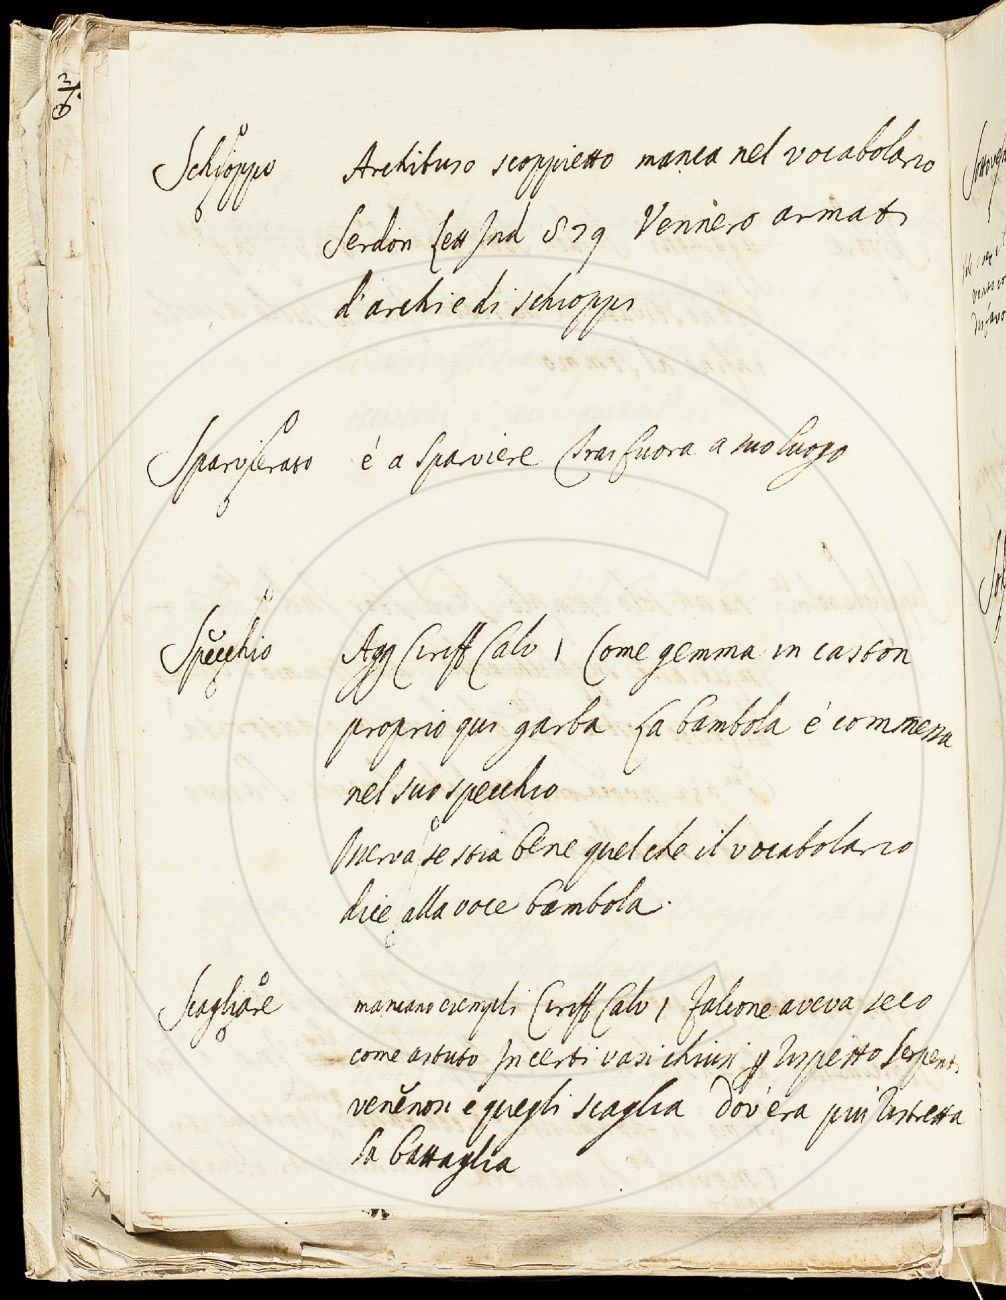 Schioppo Archibuso scoppietto manca nel vocabolario
Serdon Lett Ind 879 Vennero armati
d'archi e di schioppi
Sparvierato é a sparviere trai fuora a suo luogo
Specchio Agg Ciriff Calv 1 Come gemma in caston
proprio qui garba La bambola é commessa
nel suo specchio
Osserva se stia bene quel che il vocabolario
dice alla voce bambola.
Scagliare mancano esempli Ciriff Calv 1 Falcone aveva seco
come astuto In certi vasi chiusi p dispetto serpenti
venenosi e quegli scaglia Dov'era piu ristretta
la battaglia